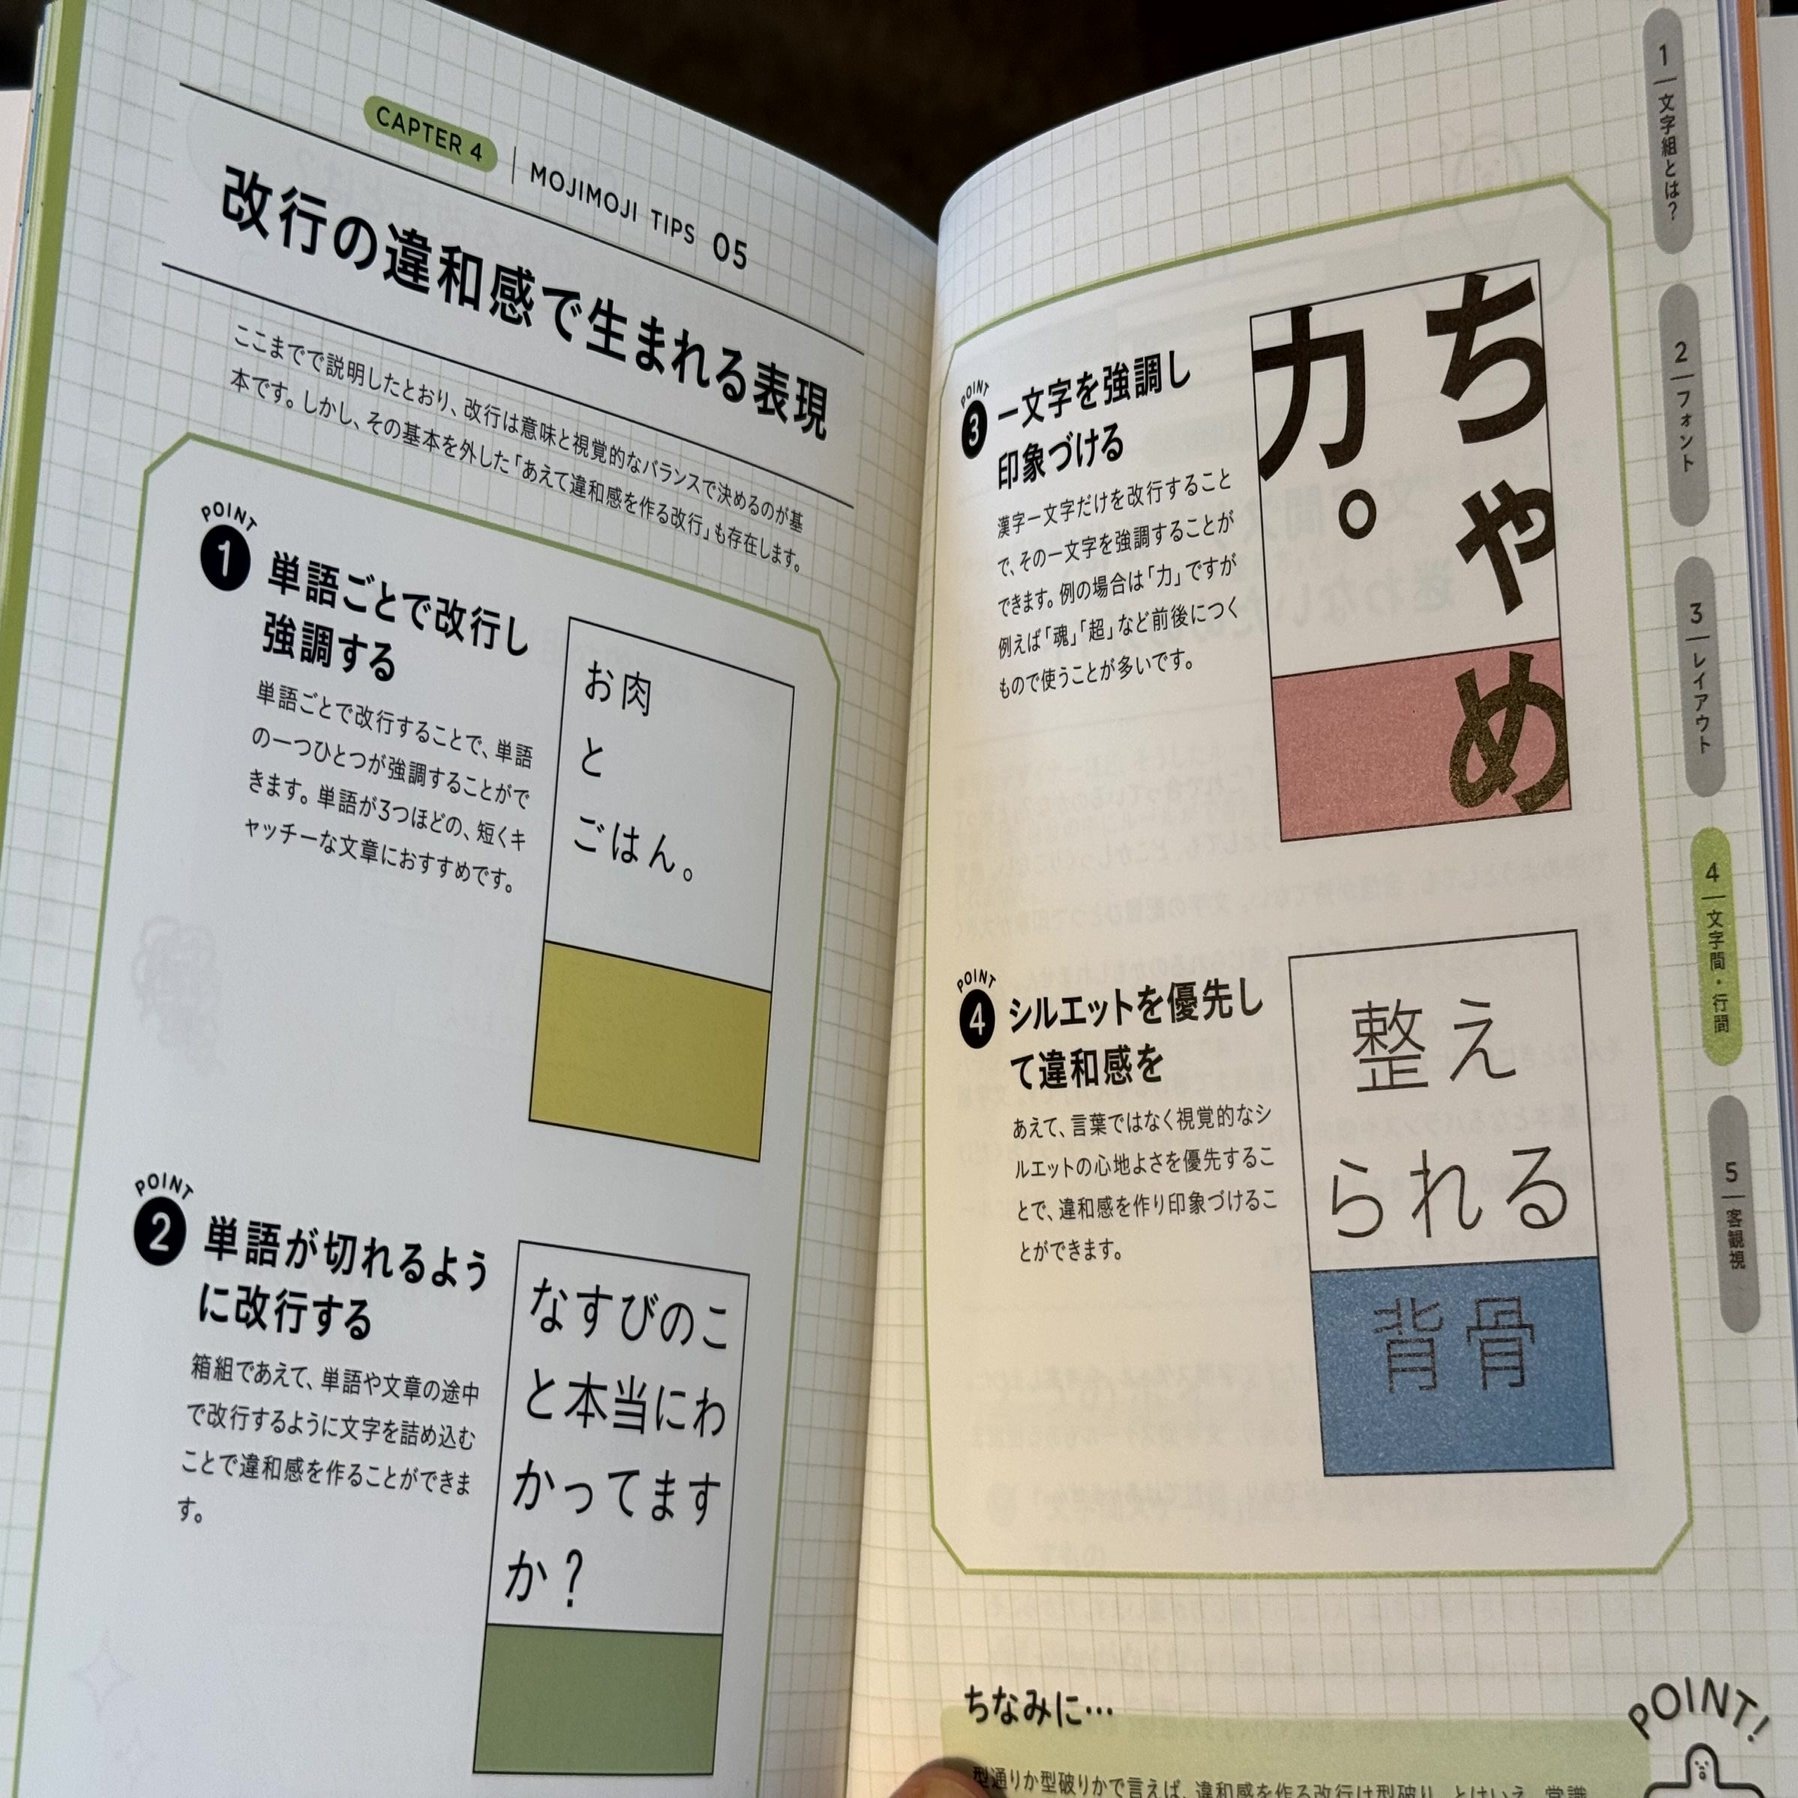 CAPTER 4 | MOJIMOJI TIPS 05
改行の違和感で生まれる表現
ここまでで説明したとおり、改行は意味と視覚的なバランスで決めるのが基
本です。しかし、その基本を外した「あえて違和感を作る改行」も存在します。
POINT
1
単語ごとで改行し
強調する
単語ごとで改行することで、単語
の一つひとつが強調することがで
きます。単語が3つほどの、短くキ
ャッチーな文章におすすめです。
お肉
と
ごはん。
POINT
2
単語が切れるよう
に改行する
箱組であえて、単語や文章の途中
で改行するように文字を詰め込む
ことで違和感を作ることができま
す。
なすびのこ
と本当にわ
かってます
か?
POINT
3
一文字を強調し
印象づける
漢字一文字だけを改行すること
で、その一文字を強調することが
できます。例の場合は「力」ですが
例えば「魂」「超」など前後につく
もので使うことが多いです。
ちゃめ
力。
POINT
4
シルエットを優先し
て違和感を
あえて、言葉ではなく視覚的なシ
ルエットの心地よさを優先するこ
とで、違和感を作り印象づけるこ
とができます。
整え
られる
背骨
ちなみに…
型通りか型破りかで言えば、違和感を作る改行は型破り。とはいえ、常識
POINT!
1 文字組とは?
2 フォント
3 レイアウト
4 文字間・行間
5 客観視